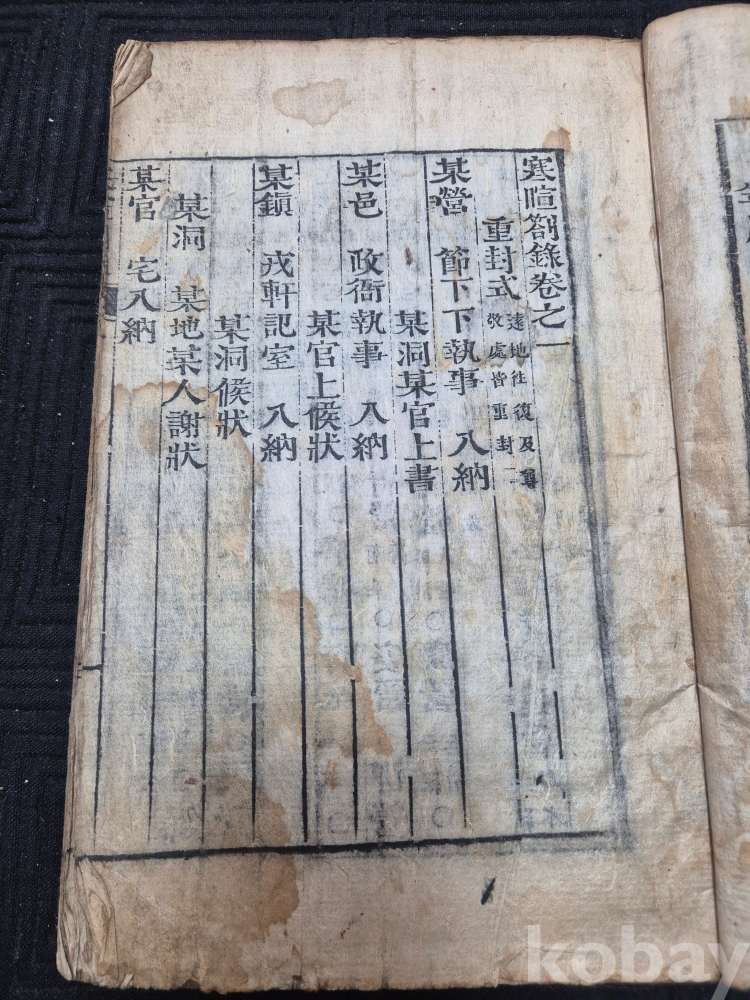 寒暄劄錄卷之一
重封式 遠地往復及尊
敬處皆重封
某營 節下下執事 入納
某洞某官上書
某邑 政衙執事 入納
某官上候狀
某鎭 戎軒記室 入納
某洞候狀
某洞 某地某人謝狀
某官 宅入納
kobay